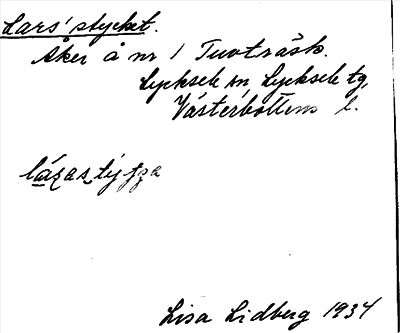 Lars'stycket.
Åker å nr 1 Tuvträsk.
Lycksele sn Lycksele tg,
Västerbottens l.
Lisa Lidberg 1934